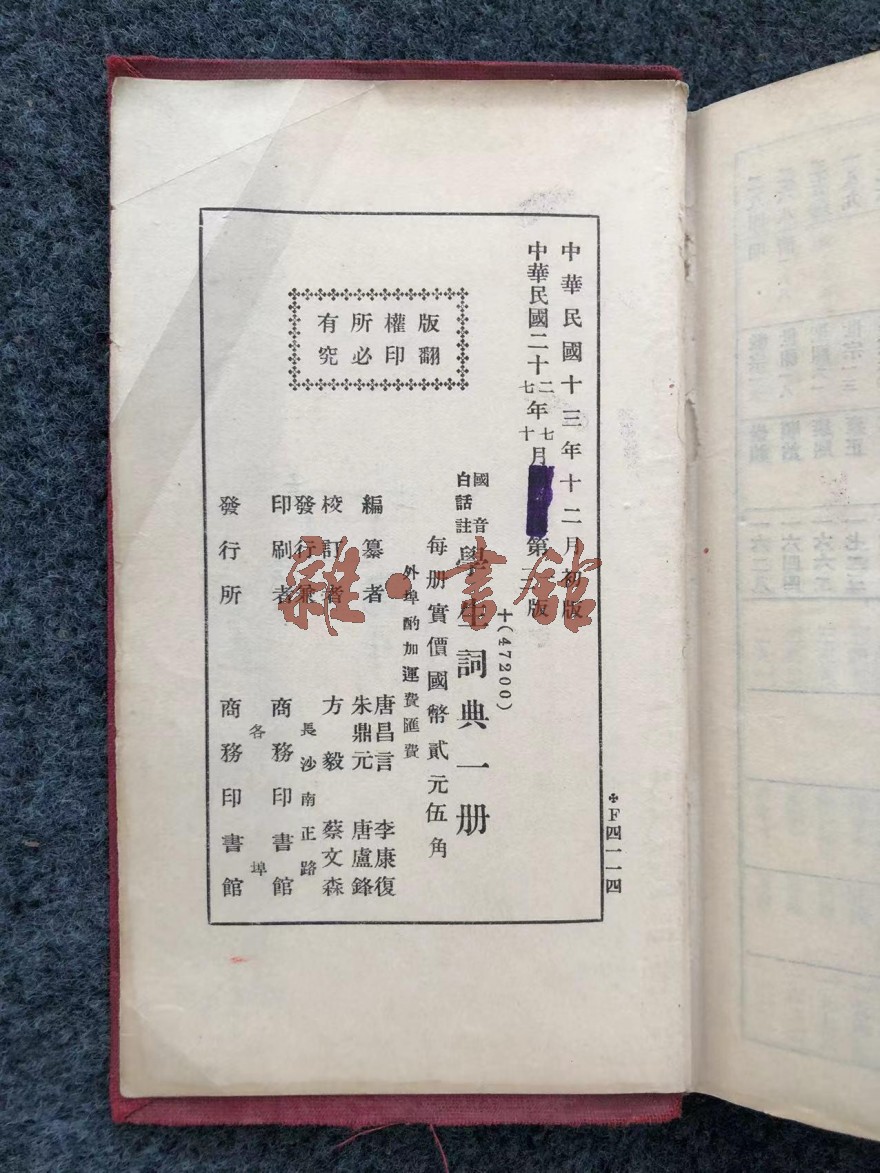 中華民國十三年十二月初版
中華民國二十二七年七十月第版
國音白話註學生詞典一册
十(47200)
每册實價國幣貳元伍角
外埠酌加運費匯費
編纂者 唐昌言 李康復 朱鼎元 唐盧鋒
校訂者 方毅 蔡文森
發行兼印刷者 長沙南正路 商務印書館
發行所 各埠 商務印書館
版權所有
翻印必究
F四一一四
雜·書館